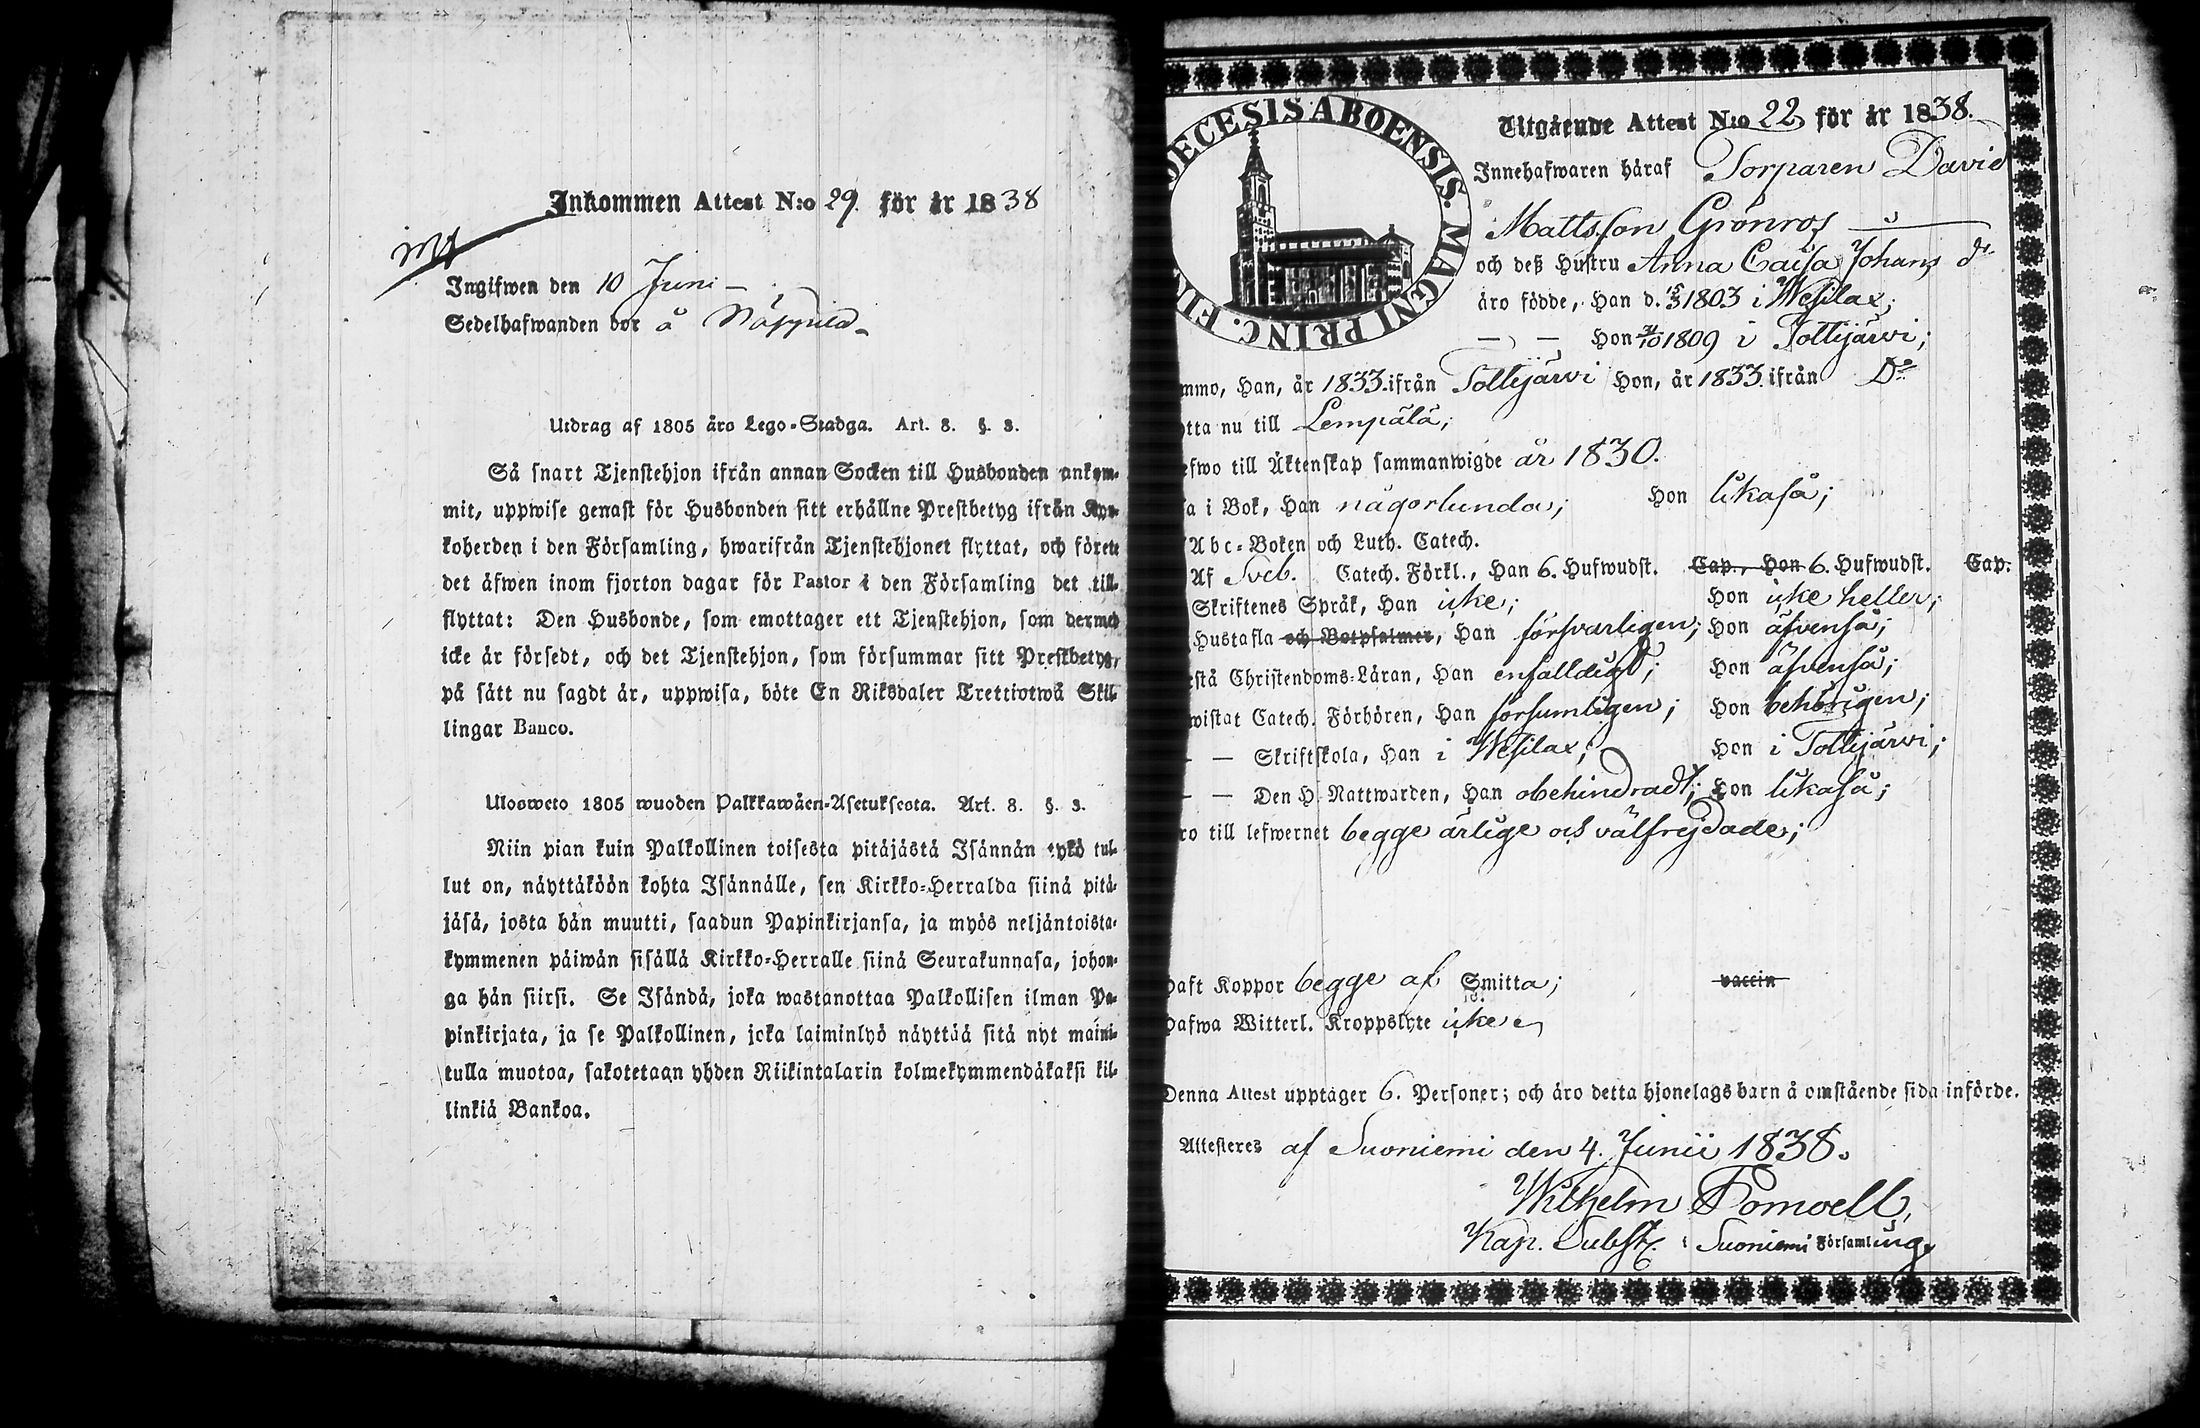 Inkommen Attest N:o 29. för år 1838
Ingifwen den 10 Juni
Sedelhafwanden bor å Näppilä
Utdrag af 1805 års Lego-Stadga. Art. 8. §. 3.
Så snart Tjenstehjon ifrån annan Socken till Husbonden ankom-
mit, uppwise genast för Husbonden sitt erhållne Prestbetyg ifrån Kyr-
koherden i den Församling, hwarifrån Tjenstehjonet flyttat, och förete
det äfwen inom fjorton dagar för Pastor i den Församling det till-
flyttat: Den Husbonde, som emottager ett Tjenstehjon, som dermed
icke är försedt, och det Tjenstehjon, som försummar sitt Prestbetyg,
på sätt nu sagdt är, uppwisa, böte En Riksdaler Trettiotwå Skil-
lingar Banco.
Ulosweto 1805 wuoden Palkkawäen-Asetuksesta. Art. 8. §. 3.
Niin pian kuin Palkollinen toisesta pitäjästä Isännän tykö tul-
lut on, näyttäköön kohta Isännälle, sen Kirkko-Herralda siinä pitä-
jäsä, josta hän muutti, saadun Papinkirjansa, ja myös neljäntoista-
kymmenen päiwän sisällä Kirkko-Herralle siinä Seurakunnasa, johon-
ga hän siirsi. Se Isändä, joka wastanottaa Palkollisen ilman Pa-
pinkirjata, ja se Palkollinen, joka laiminlyö näyttää sitä nyt maini-
tulla muotoa, sakotetaan yhden Riikintalarin kolmekymmendäkaksi kil-
linkiä Bankoa.
OECESIS ABOENSIS. MAGNI PRINC. FIN
Utgående Attest N:o 22 för år 1838.
Innehafwaren häraf Torparen David
Mattsson Grönros
och deß Hustru Anna Caisa Johans dr
äro födde, Han d. 15/3 1803 i Wesilax;
— — Hon 1809 i Tottijärvi;
mmo, Han, år 1833. ifrån Tottijärvi Hon, år 1833. ifrån Do
tta nu till Lempälä;
efwo till Äktenskap sammanwigde år 1830.
a i Bok, Han någorlunda; Hon likaså;
Abc-Boken och Luth. Catech.
Af Sveb. Catech. Förkl., Han 6. Hufwudst. Cap., Hon 6. Hufwudst. Cap.
Skriftenes Språk, Han icke; Hon icke heller;
Hustafla och Botpsalmer, Han försvarligen; Hon äfvenså;
stå Christendoms-Läran, Han enfalldigt; Hon äfvenså;
wistat Catech. Förhören, Han försumligen; Hon behörigen;
— — Skriftskola, Han i Wesilax; Hon i Tottijärvi;
— — Den H. Nattwarden, Han obehindradt; Hon likaså;
ro till lefwernet begge ärlige och välfrejdade;
haft Koppor begge af Smitta; vaccin
hafwa Witterl. Kroppslyte icke
Denna Attest upptager 6. Personer; och äro detta hjonelags barn å omstående sida införde.
Attesteres af Suoniemi den 4. Junii 1838.
Wilhelm Pomoell,
Kap. Subst. i Suoniemi Församling